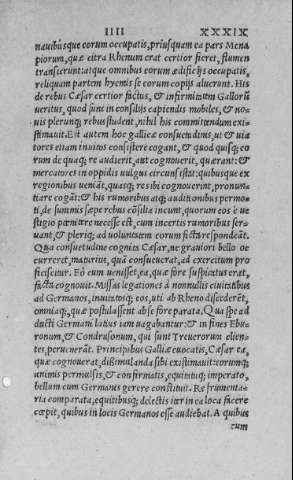 IIII XXXIX
nauibusque eorum occupatis, priusquam ea pars Mena
piorum, quæ citra Rhenum erat certior fieret, flumen
transierunt: atque omnibus eorum ædificijs occupatis,
reliquam partem hyemis se eorum copijs aluerunt. His
de rebus Cæsar certior factus, & infirmitatem Gallorū
ueritus, quod sunt in consilijs capiendis mobiles, & no=
uis plerunq; rebus student, nihil his committendum exi=
stimauit. Est autem hoc gallicæ consuetudinis, ut & uia
tores etiam inuitos consistere cogant, & quod quisq; eo
rum de quaq; re audierit, aut cognouerit, quærant: &
mercatores in oppidis uulgus circunsistat: quibusque ex
regionibus ueniāt, quasq; res ibi cognouerint, pronun=
tiare cogāt: & his rumoribus atq; auditionibus permo=
ti, de summis sæpe rebus cōsilia ineunt, quorum eos è ue
stigio pœnitere necesse est, cum incertis rumoribus ser=
uiant, & pleriq; ad uoluntatem eorum ficta respondeāt.
Qua consuetudine cognita Cæsar, ne grauiori bello oc
curreret, maturius, quā consueuerat, ad exercitum pro
ficiscitur. Eò cum uenisset, ea, quæ fore suspicatus erat,
facta cognouit. Missas legationes à nonnullis ciuitatibus
ad Germanos, inuitatosq; eos, uti ab Rheno discederēt,
omniaq;, quæ postulassent ab se fore parata. Qua spe ad
ducti Germani latius iam uagabantur: & in fines Ebu=
ronum, & Condrusonum, qui sunt Treuerorum clien=
tes, peruenerāt. Principibus Galliæ euocatis, Cæsar ea,
quæ cognouerat, dissimulanda sibi existimauit: eorumq;
animis permulsis, & confirmatis, equitatuq; imperato,
bellum cum Germanis gerere constituit. Re frumenta=
ria comparata, equitibusq; delectis iter in ea loca facere
cœpit, quibus in locis Germanos esse audiebat. A quibus
cum